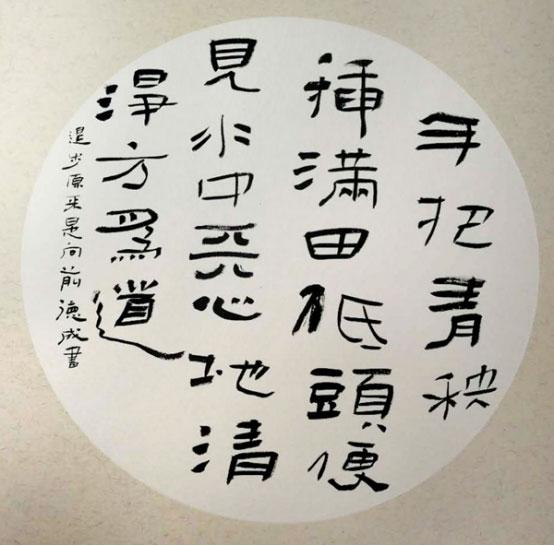 手把青秧
插滿田低頭便
見水中天心地清
淨方爲道
退步原来是向前德成書